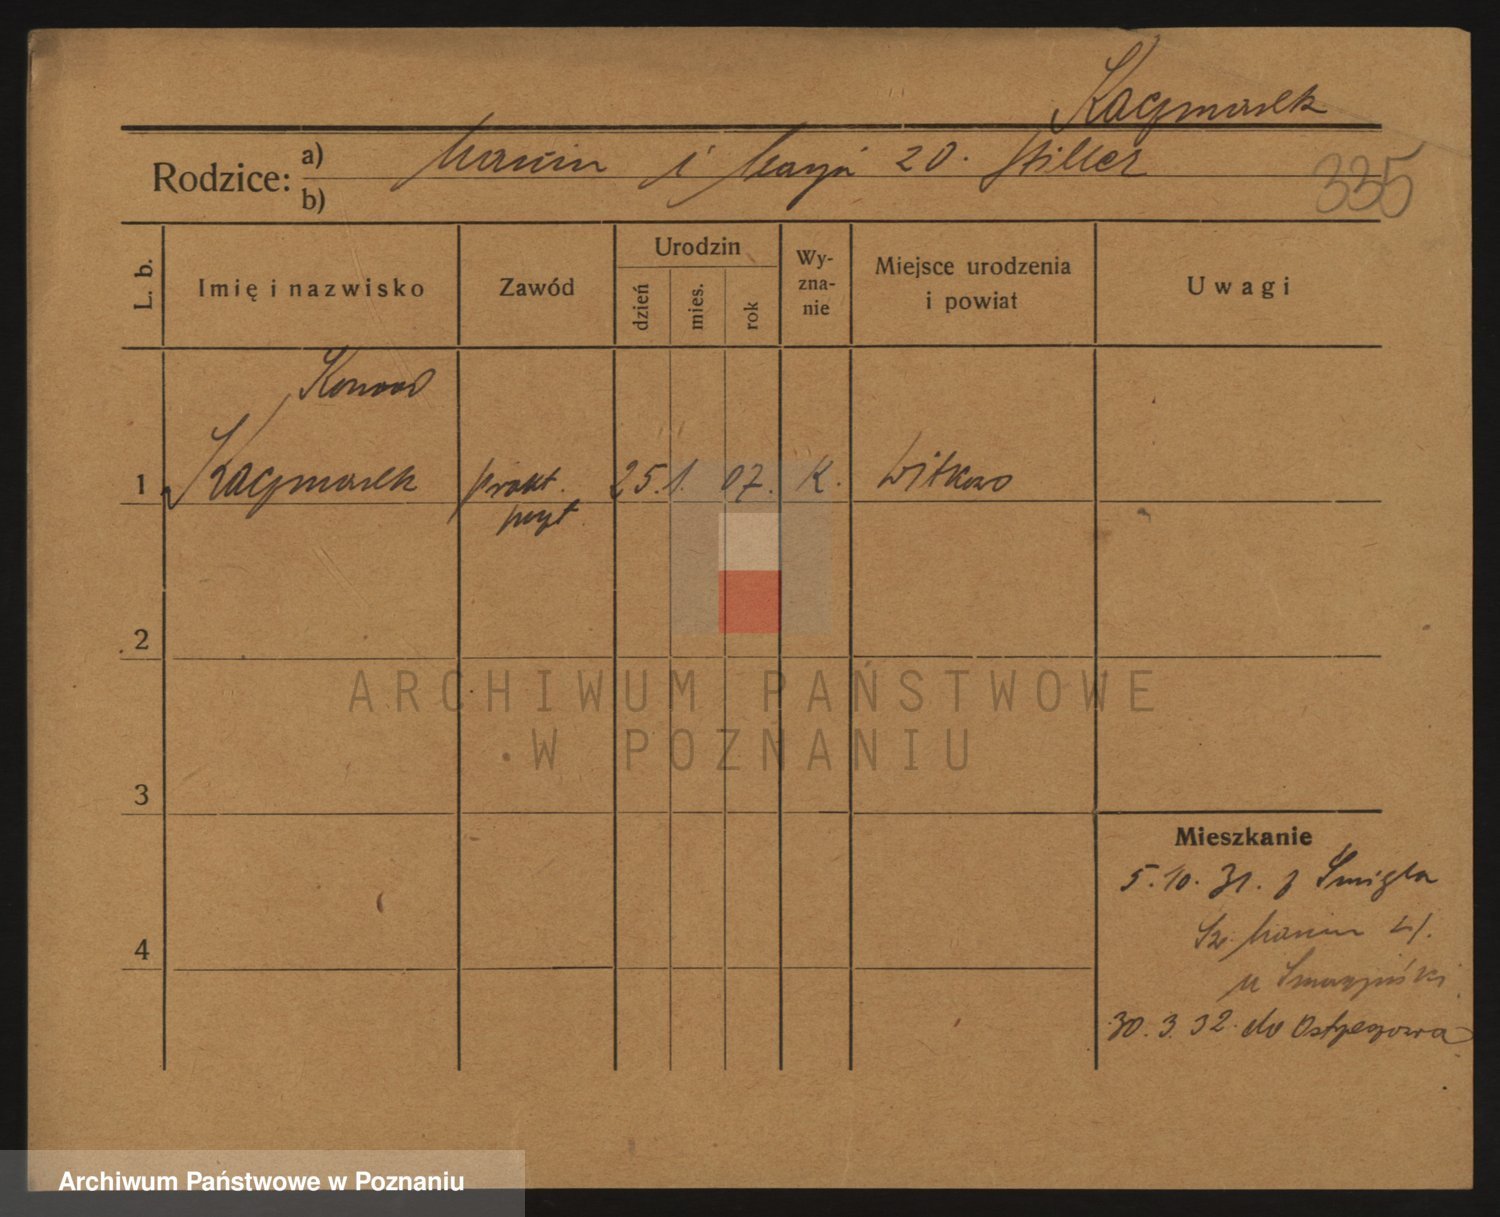 Kaczmarek
Rodzice: a) Marcin i Marja zd. Stiller
b)
335
L. b.
Imię i nazwisko
Zawód
Urodzin
dzień
mies.
rok
Wy-
zna-
nie
Miejsce urodzenia
i powiat
Uwagi
Konrad
1 Kaczmarek prakt. 25. 1. 07. K. Witkowo
2
3
4
ARCHIWUM PAŃSTWOWE
W POZNANIU
Mieszkanie
5.10.31. z Śmigla
Św. Marcin
u
30.3.32. do
Archiwum Państwowe w Poznaniu